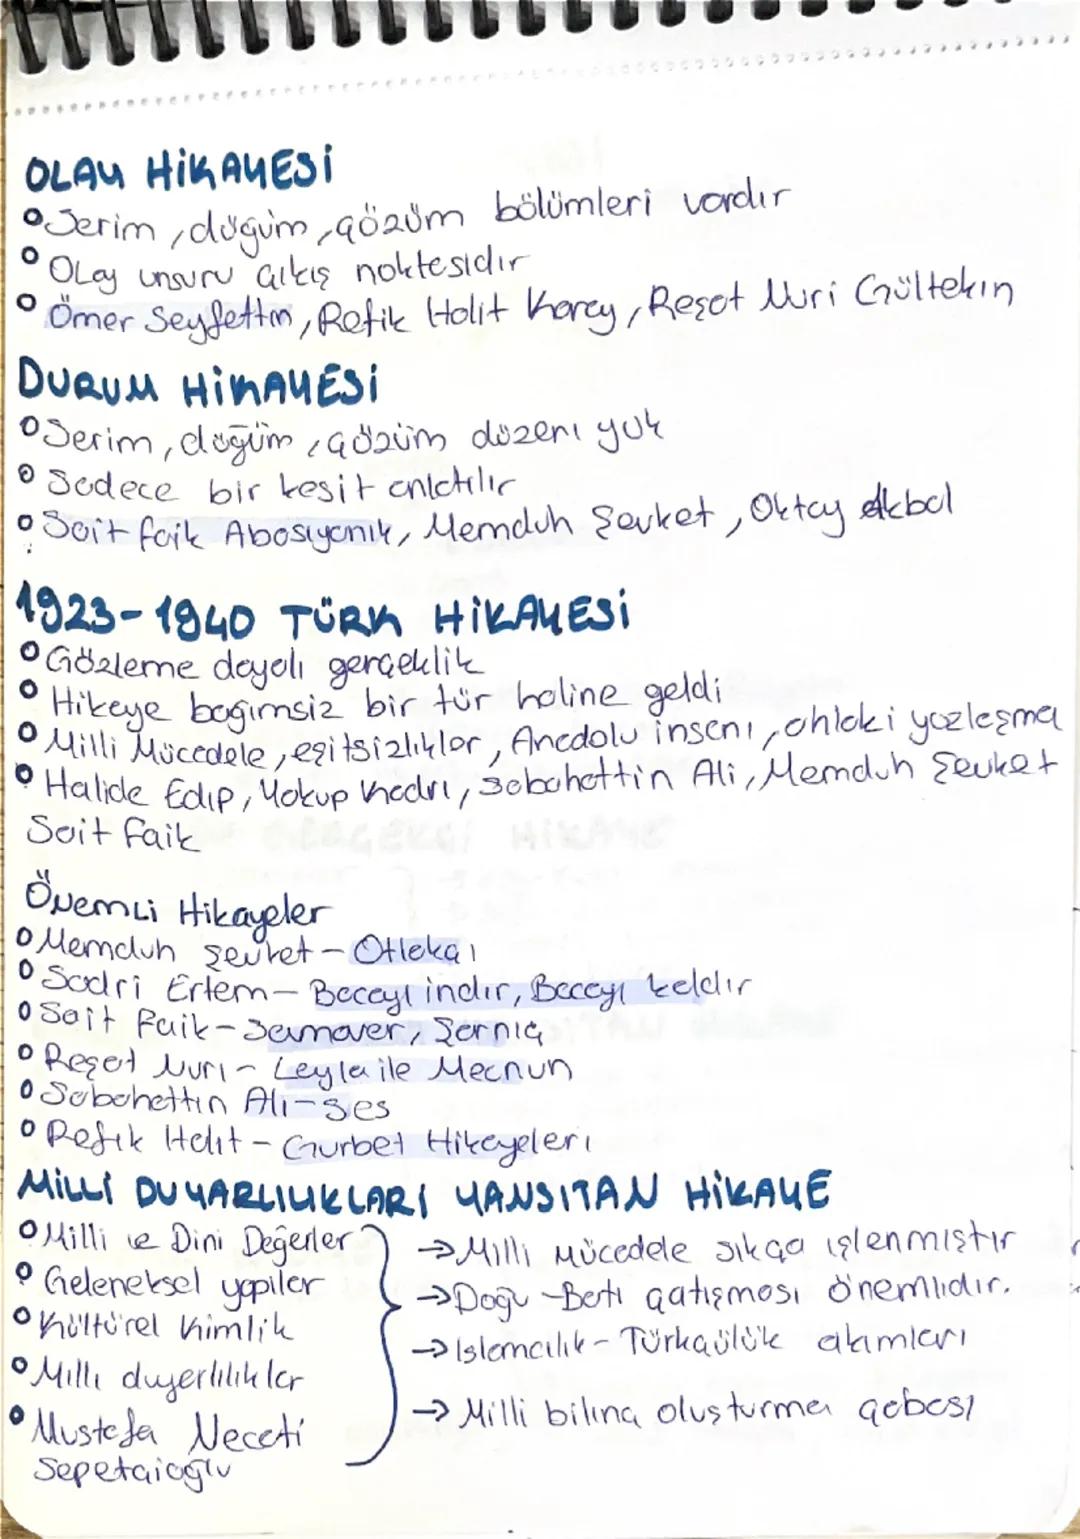 OLAY HİKAYESİ
Serim, düğüm, çözüm bölümleri vardır
Olay unsuru çıkış noktasıdır
Ömer Seyfettin, Refik Halit Karay, Reşat Nuri Gültekin
DURUM HİKAYESİ
Serim, düğüm, çözüm düzeni yok
Sadece bir kesit anlatılır
Sait Faik Abasıyanık, Memduh Şevket, Oktay Akbal
1923-1940 TÜRK HİKAYESİ
Gözleme dayalı gerçeklik
Hikaye bağımsız bir tür haline geldi
Milli Mücadele, eşitsizlikler, Anadolu insanı, ahlaki yozlaşma
Halide Edip, Yakup Kadri, Sabahattin Ali, Memduh Şevket
Sait Faik
Önemli Hikayeler
Memduh Şevket - Otlakçı
Sadri Ertem - Bacayı indir, Bacayı kaldır
Sait Faik - Semaver, Sarnıç
Reşat Nuri - Leyla ile Mecnun
Sabahattin Ali - Ses
Refik Halit - Gurbet Hikayeleri
MİLLİ DUYARLILIKLARI YANSITAN HİKAYE
Milli ve Dini Değerler
Geleneksel yapılar
Kültürel Kimlik
Milli duyarlılıklar
Mustafa Necati
Sepetçioğlu
→ Milli Mücadele sıkça işlenmiştir
→ Doğu-Batı çatışması önemlidir.
→ İslamcılık - Türkçülük akımları
→ Milli bilinç oluşturma çabası